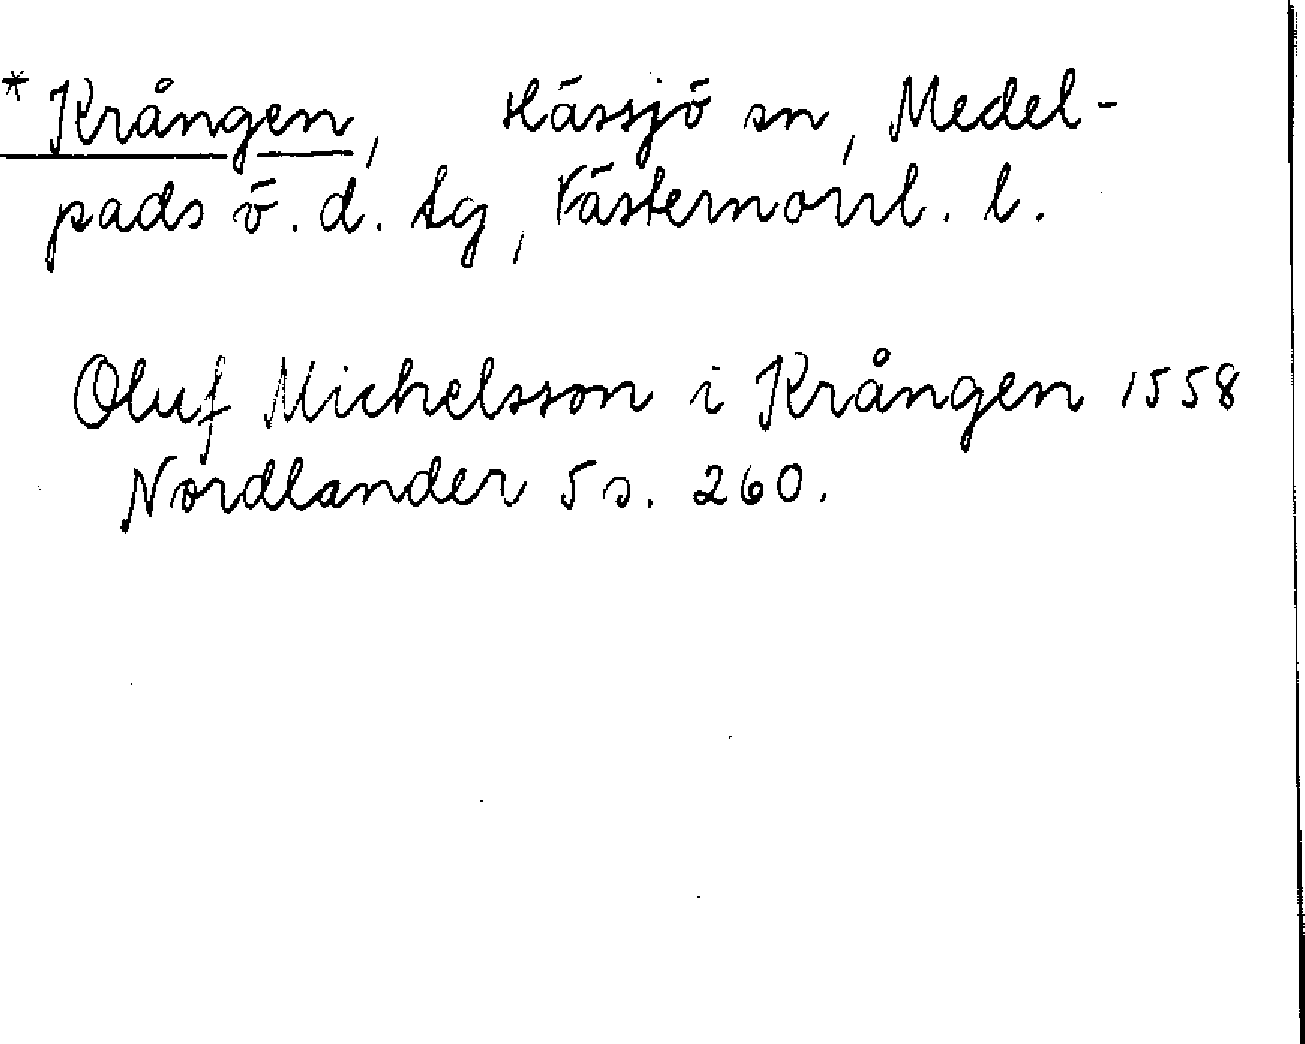 *Krången, Hässjö sn, Medel-
pads ö. d. tg, Västernorrl. l.
Oluf Michelsson i Krången 1558
Nordlander 5 s. 260.